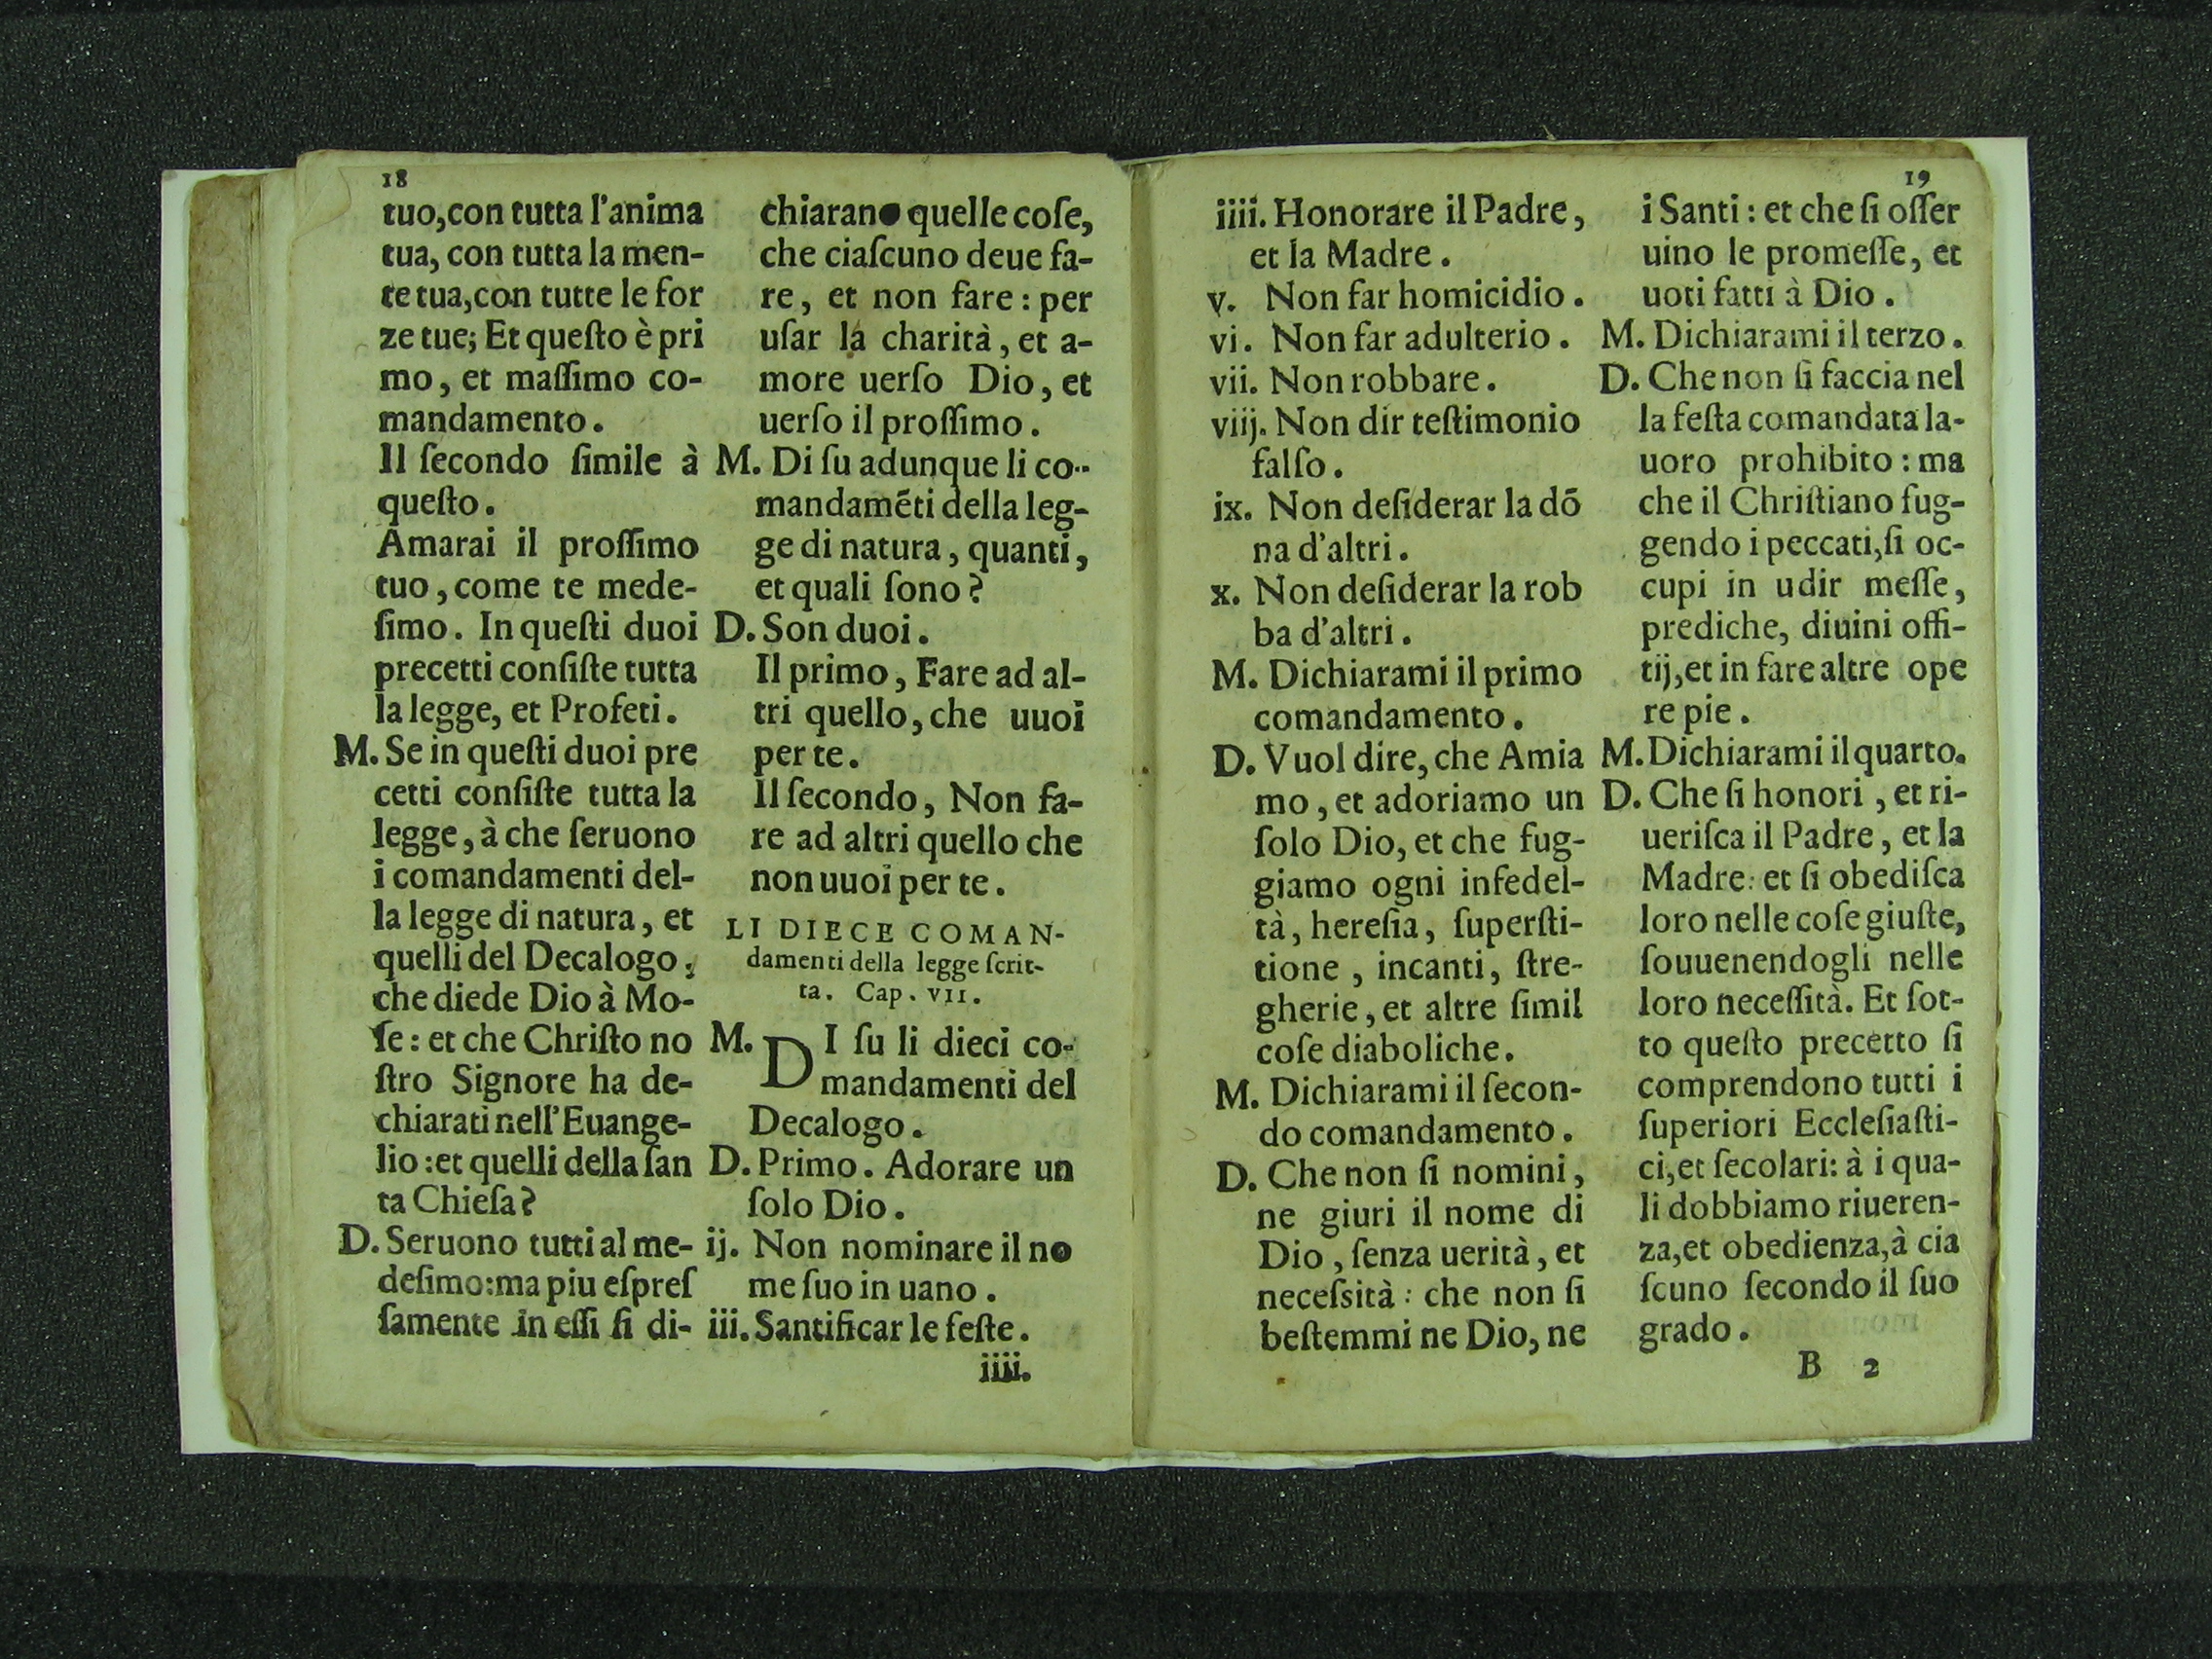 18
tuo,con tutta l'anima
tua, con tutta la men-
te tua,con tutte le for
ze tue; Et queſto è pri
mo, et maſſimo co-
mandamento.
Il ſecondo ſimile à
queſto.
Amarai il proſſimo
tuo, come te mede-
ſimo. In queſti duoi
precetti conſiſte tutta
la legge, et Profeti.
M. Se in queſti duoi pre
cetti conſiſte tutta la
legge, à che ſeruono
i comandamenti del-
la legge di natura, et
quelli del Decalogo,
che diede Dio à Mo-
ſe: et che Chriſto no
ſtro Signore ha de-
chiarati nell'Euange-
lio: et quelli della ſan
ta Chieſa?
D. Seruono tutti al me-
deſimo: ma piu eſpreſ
ſamente in eſſi ſi di-
chiarano quelle coſe,
che ciaſcuno deue fa-
re, et non fare: per
uſar la charità, et a-
more uerſo Dio, et
uerſo il proſſimo.
M. Di ſu adunque li co-
mandamẽti della leg-
ge di natura, quanti,
et quali ſono?
D. Son duoi.
Il primo, Fare ad al-
tri quello, che uuoi
per te.
Il ſecondo, Non fa-
re ad altri quello che
non uuoi per te.
LI DIECE COMAN-
damenti della legge ſcrit-
ta. Cap. VII.
M. DI ſu li dieci co-
mandamenti del
Decalogo.
D. Primo. Adorare un
ſolo Dio.
ij. Non nominare il no
me ſuo in uano.
iii. Santificar le feſte.
iiii.
19
iiii. Honorare il Padre,
et la Madre.
v. Non far homicidio.
vi. Non far adulterio.
vii. Non robbare.
viij. Non dir teſtimonio
falſo.
ix. Non deſiderar la dō
na d'altri.
x. Non deſiderar la rob
ba d'altri.
M. Dichiarami il primo
comandamento.
D. Vuol dire, che Amia
mo, et adoriamo un
ſolo Dio, et che fug-
giamo ogni infedel-
tà, hereſia, ſuperſti-
tione, incanti, ſtre-
gherie, et altre ſimil
coſe diaboliche.
M. Dichiarami il ſecon-
do comandamento.
D. Che non ſi nomini,
ne giuri il nome di
Dio, ſenza uerità, et
neceſsità: che non ſi
beſtemmi ne Dio, ne
i Santi: et che ſi oſſer
uino le promeſſe, et
uoti fatti à Dio.
M. Dichiarami il terzo.
D. Che non ſi faccia nel
la feſta comandata la-
uoro prohibito: ma
che il Chriſtiano fug-
gendo i peccati, ſi oc-
cupi in udir meſſe,
prediche, diuini offi-
tij, et in fare altre ope
re pie.
M. Dichiarami il quarto.
D. Che ſi honori, et ri-
ueriſca il Padre, et la
Madre: et ſi obediſca
loro nelle coſe giuſte,
ſouuenendogli nelle
loro neceſſità. Et ſot-
to queſto precetto ſi
comprendono tutti i
ſuperiori Eccleſiaſti-
ci, et ſecolari: à i qua-
li dobbiamo riueren-
za, et obedienza, à cia
ſcuno ſecondo il ſuo
grado.
B 2